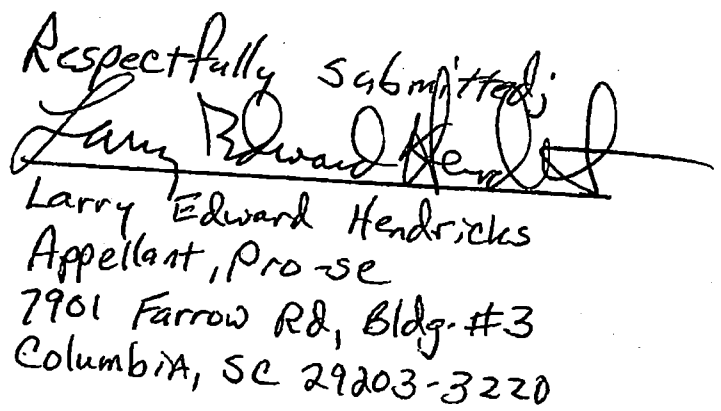 Respectfully submitted;
Larry Edward Hendricks
Larry Edward Hendricks
Appellant, Pro-se
7901 Farrow Rd, Bldg. #3
ColumbiA, SC 29203-3220